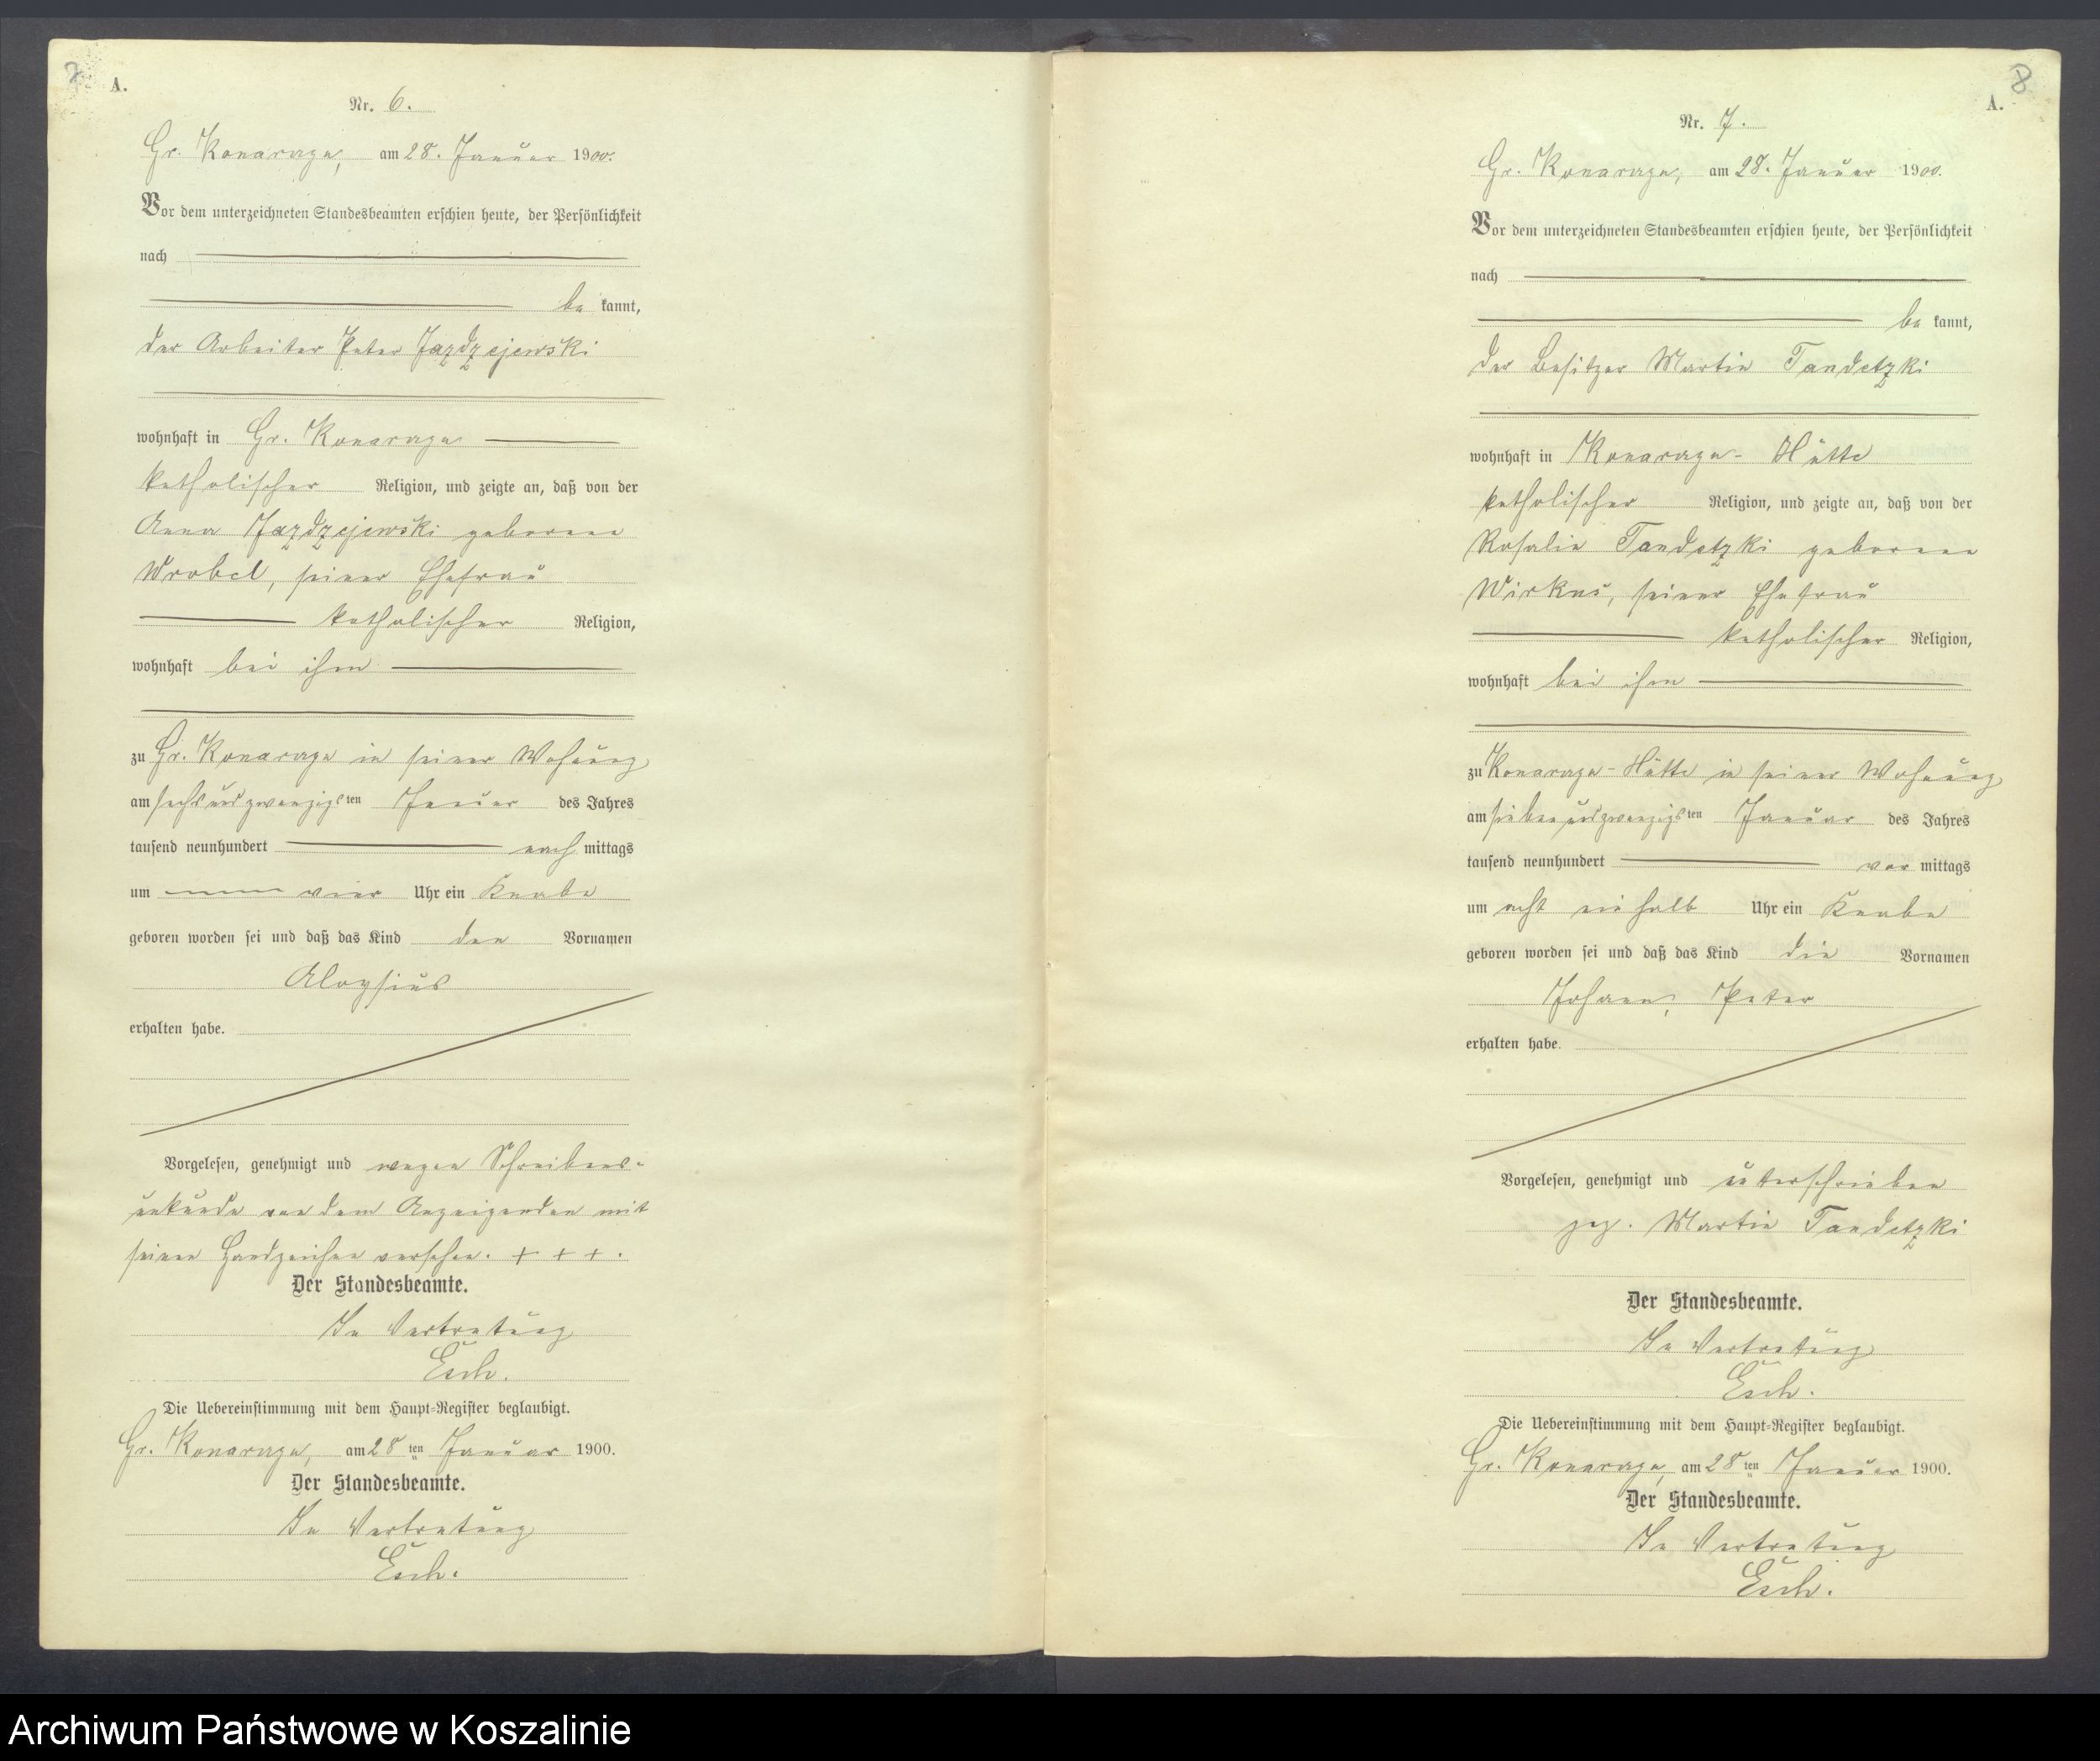 7
A.
Nr. 6.
Gr. Konarzyn, am 28. Januar 1900.
Vor dem unterzeichneten Standesbeamten erschien heute, der Persönlichkeit
nach
be kannt,
der Arbeiter Peter Jazdzejewski
wohnhaft in Gr. Konarzyn
katholischer Religion, und zeigte an, daß von der
Anna Jazdzejewski geborene
Wrobel, seiner Ehefrau
katholischer Religion,
wohnhaft bei ihm
zu Gr. Konarzyn in seiner Wohnung
am sechsundzwanzigsten Januar des Jahres
tausend neunhundert nach mittags
um vier Uhr ein Knabe
geboren worden sei und daß das Kind den Vornamen
Aloysius
erhalten habe.
Vorgelesen, genehmigt und wegen Schreibens-
unkunde von dem Anzeigenden mit
seinen Handzeichen versehen. + + +.
Der Standesbeamte.
In Vertretung
Esch.
Die Uebereinstimmung mit dem Haupt-Register beglaubigt.
Gr. Konarzyn, am 28ten Januar 1900.
Der Standesbeamte.
In Vertretung
Esch.
8
A.
Nr. 7.
Gr. Konarzyn, am 28. Januar 1900.
Vor dem unterzeichneten Standesbeamten erschien heute, der Persönlichkeit
nach
be kannt,
der Besitzer Martin Tandetzki
wohnhaft in Konarzyn-Hütte
katholischer Religion, und zeigte an, daß von der
Rosalie Tandetzki geborene
Wirkus, seiner Ehefrau
katholischer Religion,
wohnhaft bei ihm
zu Konarzyn-Hütte in seiner Wohnung
am siebenundzwanzigsten Januar des Jahres
tausend neunhundert vor mittags
um acht ein halb Uhr ein Knabe
geboren worden sei und daß das Kind die Vornamen
Johann, Peter
erhalten habe.
Vorgelesen, genehmigt und unterschrieben
gez. Martin Tandetzki
Der Standesbeamte.
In Vertretung
Esch.
Die Uebereinstimmung mit dem Haupt-Register beglaubigt.
Gr. Konarzyn, am 28ten Januar 1900.
Der Standesbeamte.
In Vertretung
Esch.
Archiwum Państwowe w Koszalinie